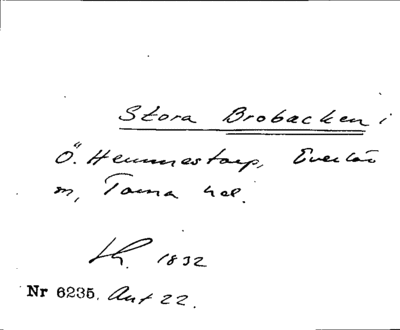 Stora Brobacken i
Ö. Hemmestorp, Everlöv
sn, Torna hd.
Lh. 1832
Nr 6235. Ant 22.